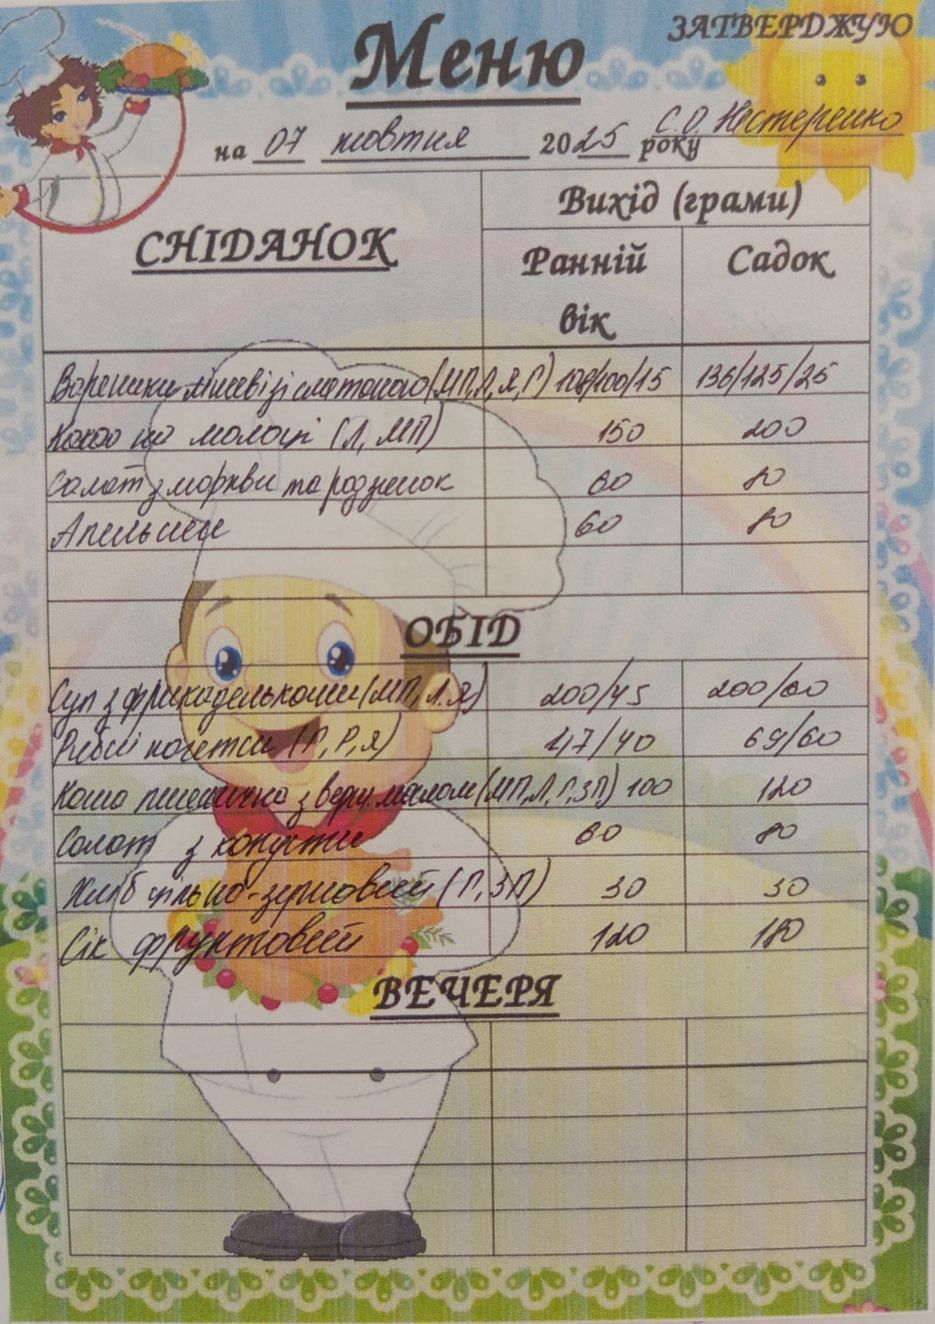 ЗАТВЕРДЖУЮ
Меню
С.О. Нестеренко
на 07 жовтня 2025 року
СНІДАНОК
Вихід (грами)
Ранній вік
Садок
Вареники ліниві зі сметаною (МП,Л,Я,Г) /100/15 136/125/25
Какао на молоці (Л, МП) 150 200
Салат з моркви та родзинок 60 80
Апельсин 60 80
ОБІД
Суп з фрикадельками (МП, Л, Я) 200/45 200/60
Рибні нагетси (Г, Р, Я) 47/40 69/60
Каша пшенична з верш. маслом (МП,Л,Г,ЗП) 100 120
Салат з капусти 60 80
Хліб цільно-зерновий (Г, ЗП) 30 30
Сік фруктовий 120 180
ВЕЧЕРЯ